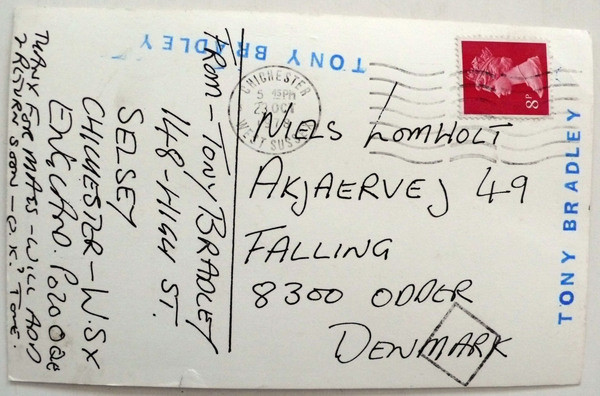 TONY BRADLEY
TONY BRADLEY
CHICHESTER
5 45PM
23 OCT
WEST SUSSEX
8P
NIELS LOMHOLT
AKJAERVEJ 49
FALLING
8300 ODDER
DENMARK
FROM - TONY BRADLEY
148 - HIGH ST.
SELSEY
CHICHESTER - W. SX
ENGLAND. PO20 0QE
THANX FOR MASS - WILL ADD
& RETURN SOON - O.K.